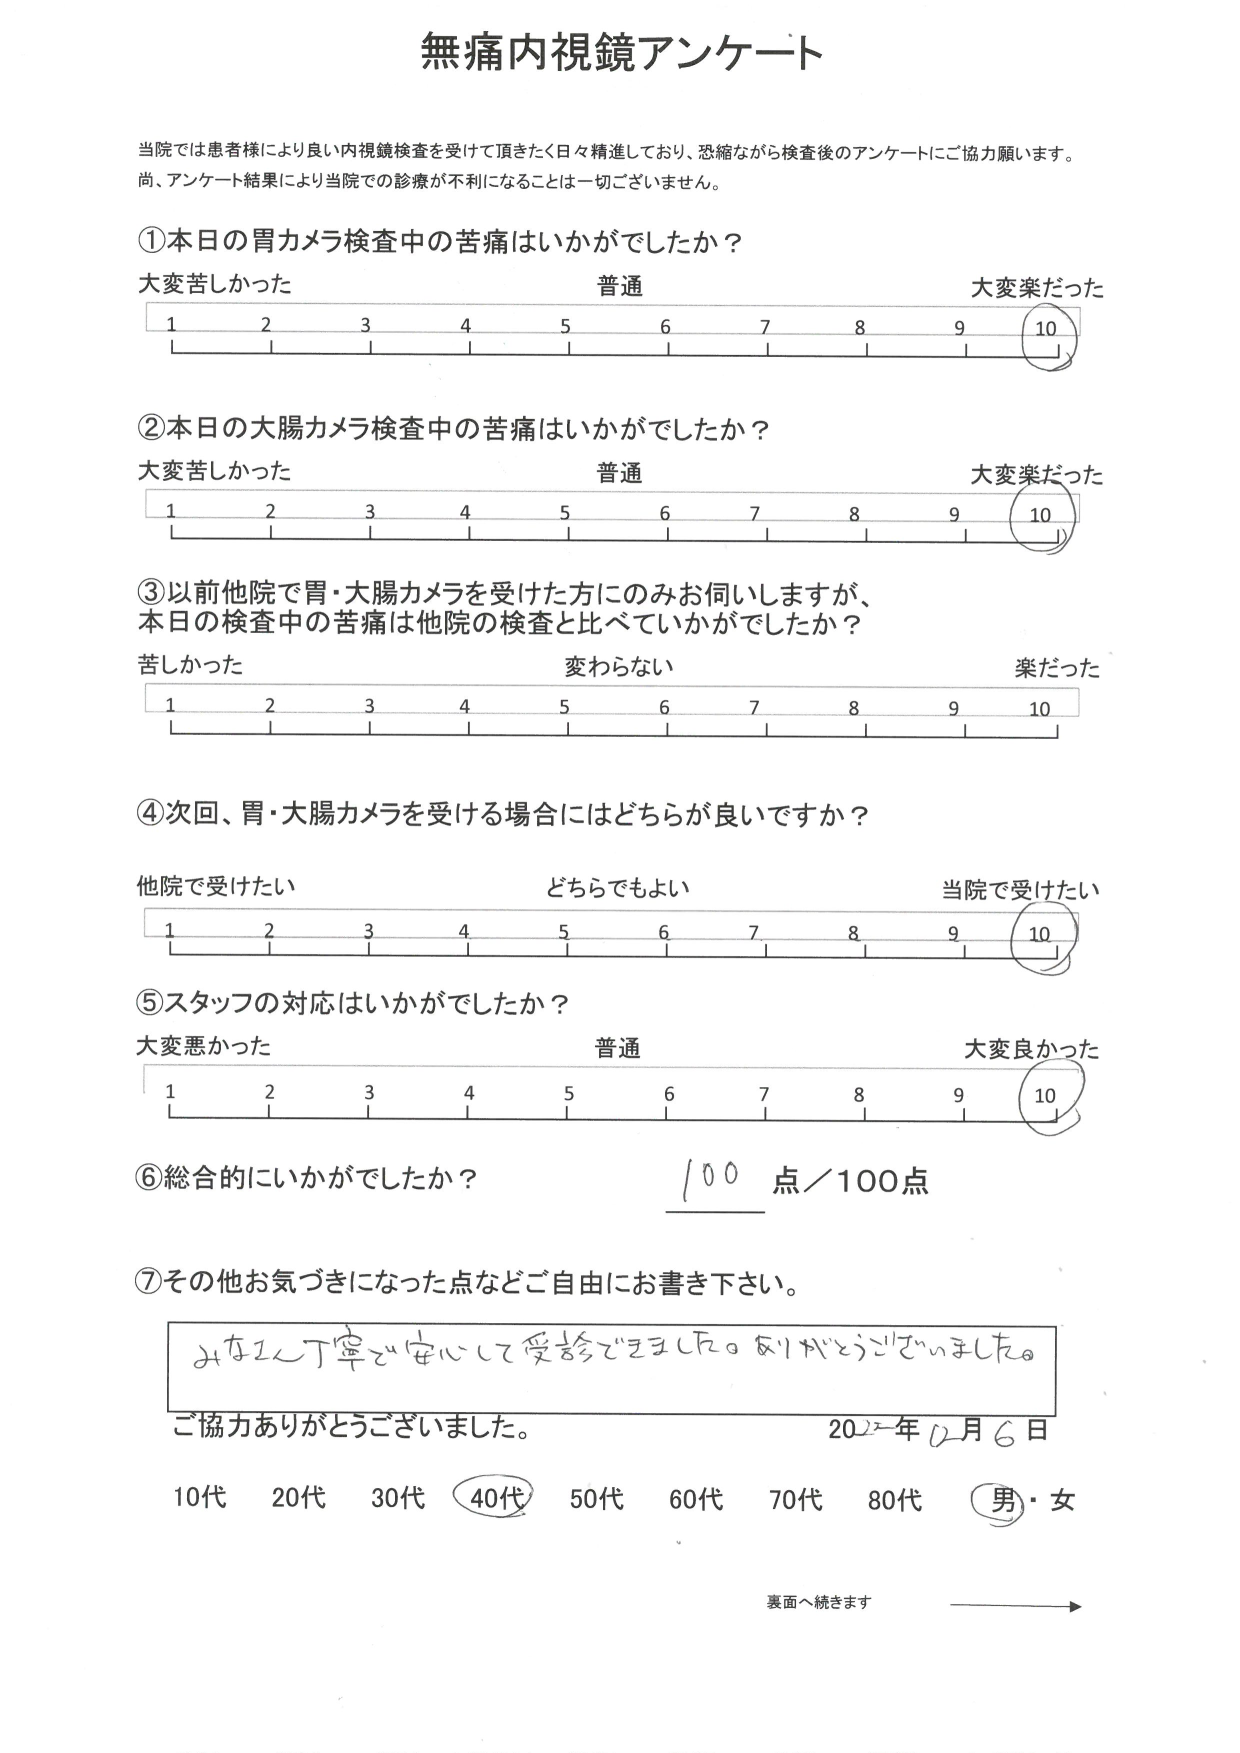 無痛内視鏡アンケート
当院では患者様により良い内視鏡検査を受けて頂きたく日々精進しており、恐縮ながら検査後のアンケートにご協力願います。
尚、アンケート結果により当院での診療が不利になることは一切ございません。
①本日の胃カメラ検査中の苦痛はいかがでしたか？
大変苦しかった 普通 大変楽だった
1 2 3 4 5 6 7 8 9 10
②本日の大腸カメラ検査中の苦痛はいかがでしたか？
大変苦しかった 普通 大変楽だった
1 2 3 4 5 6 7 8 9 10
③以前他院で胃・大腸カメラを受けた方にのみお伺いしますが、
本日の検査中の苦痛は他院の検査と比べていかがでしたか？
苦しかった 変わらない 楽だった
1 2 3 4 5 6 7 8 9 10
④次回、胃・大腸カメラを受ける場合にはどちらが良いですか？
他院で受けたい どちらでもよい 当院で受けたい
1 2 3 4 5 6 7 8 9 10
⑤スタッフの対応はいかがでしたか？
大変悪かった 普通 大変良かった
1 2 3 4 5 6 7 8 9 10
⑥総合的にいかがでしたか？ 100 点／100点
⑦その他お気づきになった点などご自由にお書き下さい。
みなさん丁寧で安心して受診できました。ありがとうございました。
ご協力ありがとうございました。 2022年12月6日
10代 20代 30代 40代 50代 60代 70代 80代 男・女
裏面へ続きます